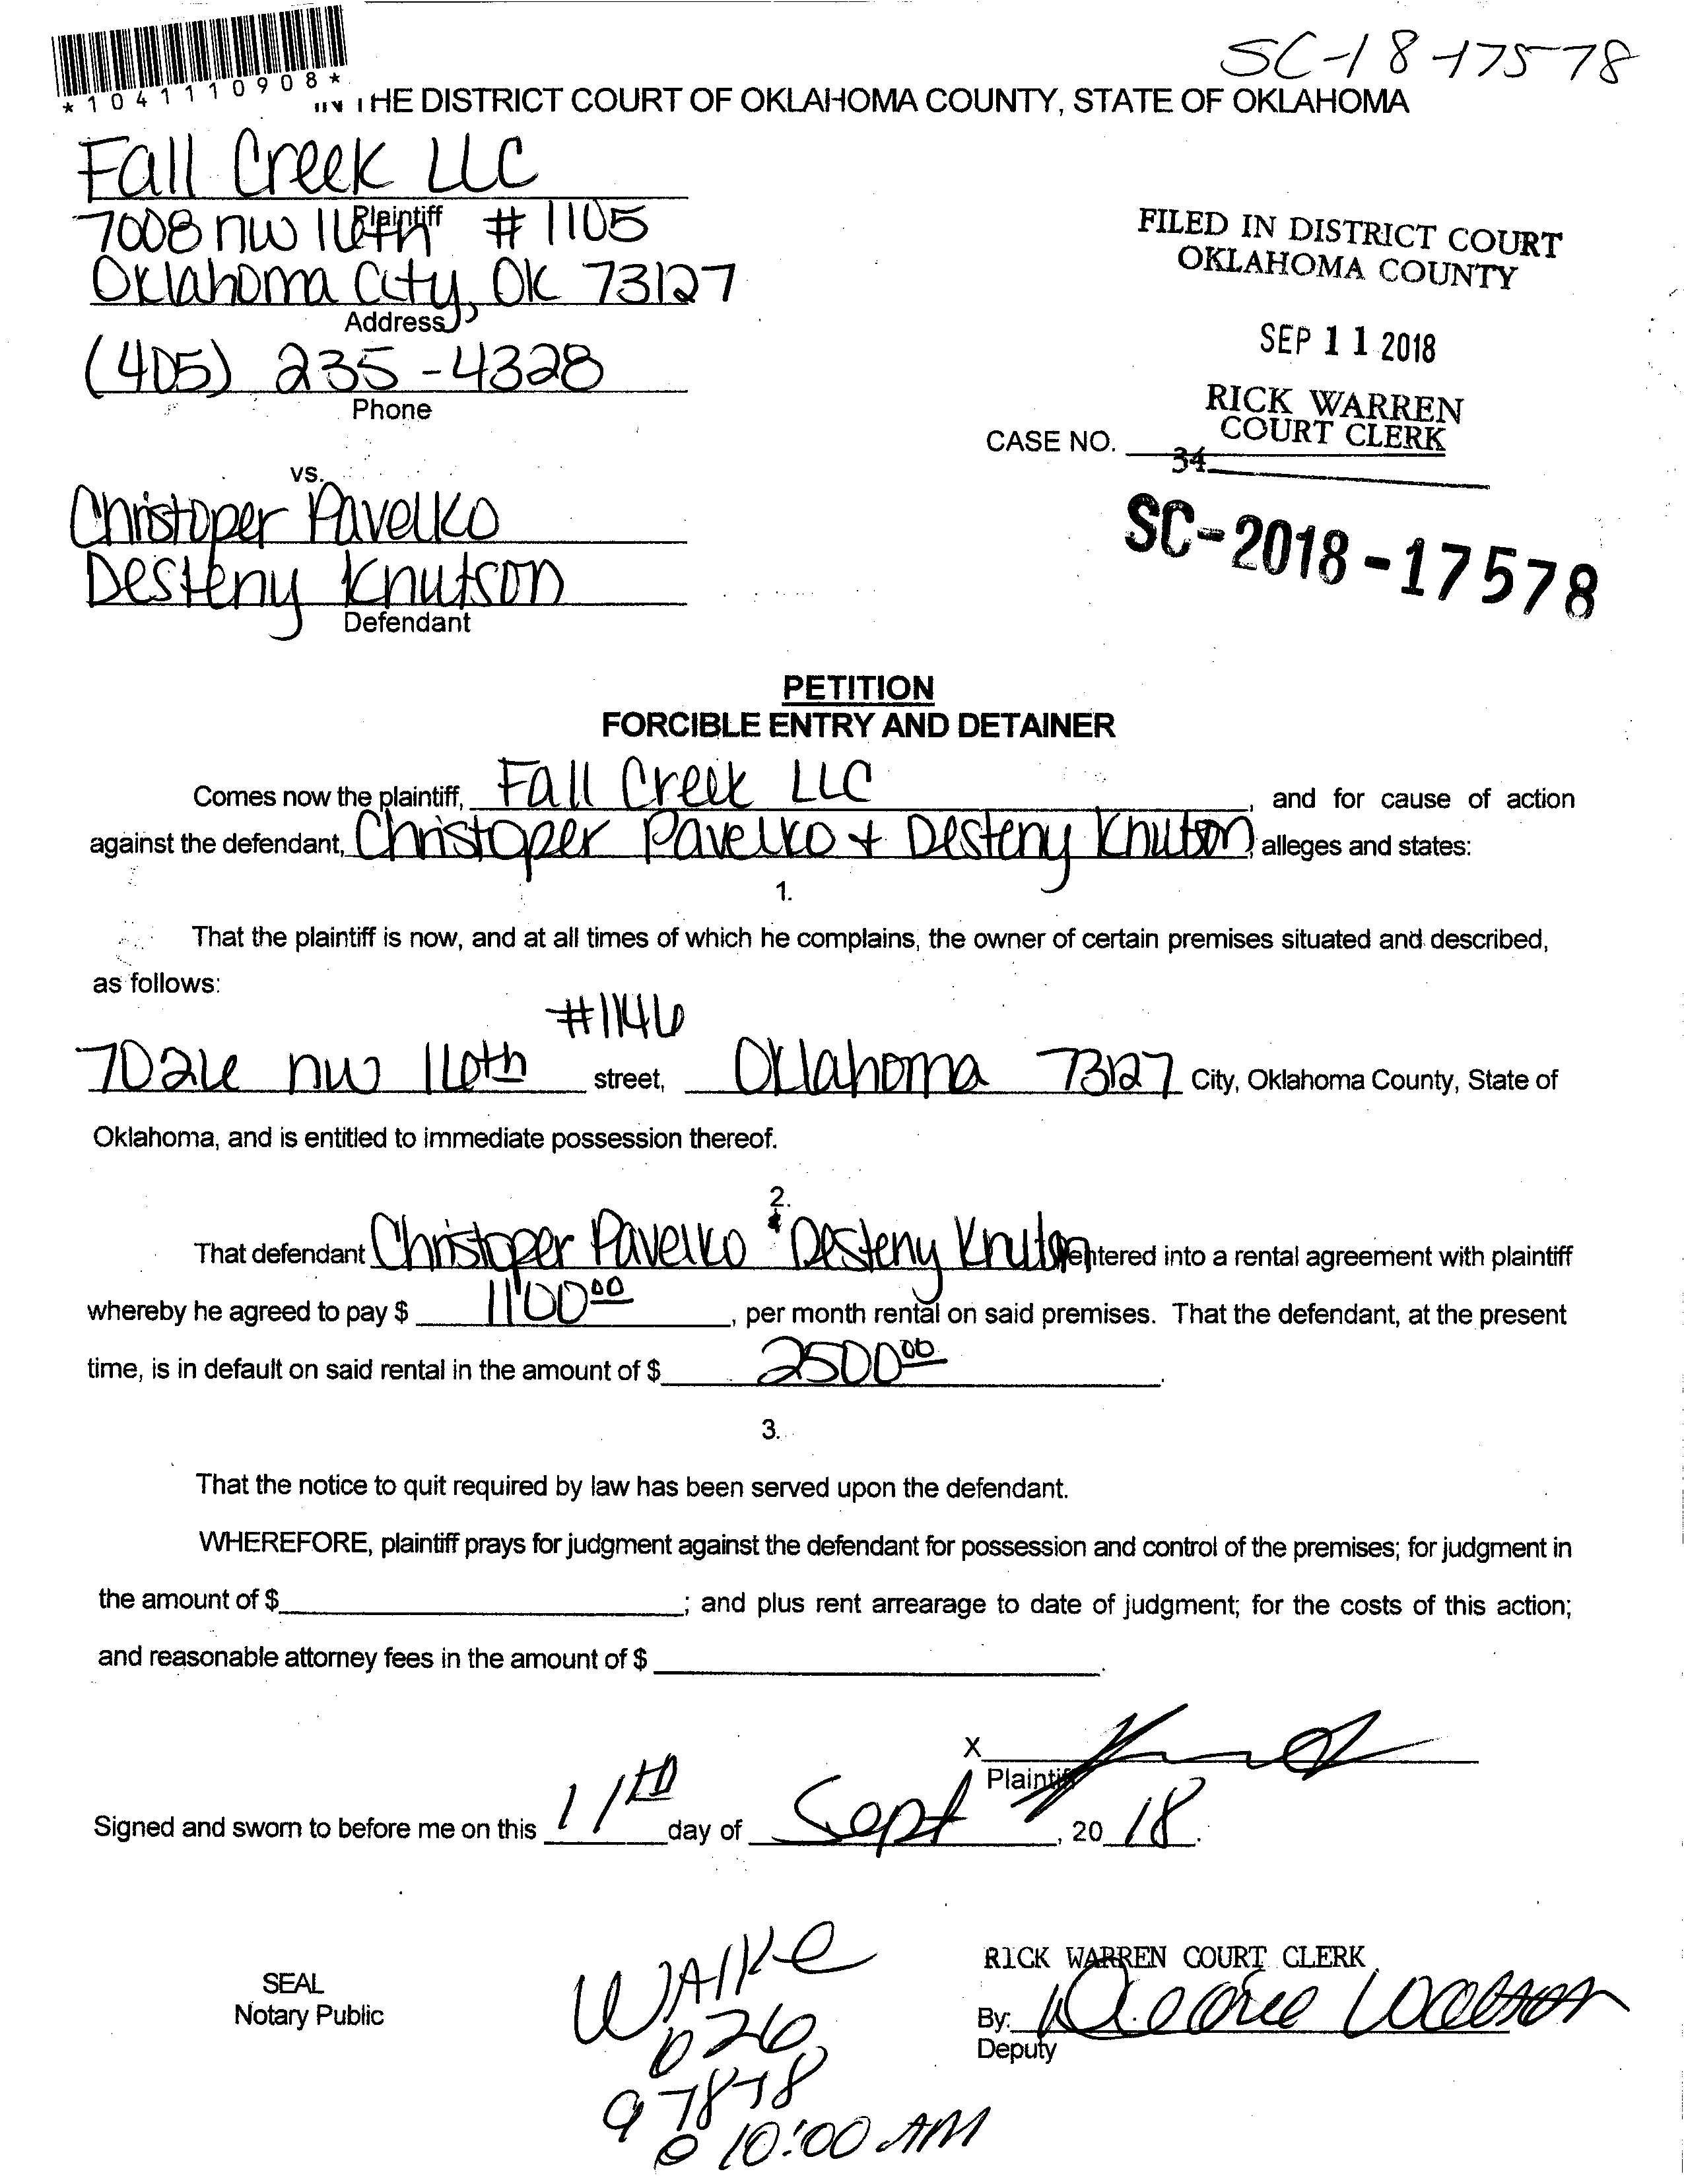 SC-18-17578
*1041110908*
THE DISTRICT COURT OF OKLAHOMA COUNTY, STATE OF OKLAHOMA
Fall Creek LLC
Plaintiff
7008 nw 16th #1105
Oklahoma City, OK 73127
Address
(405) 235-4328
Phone
FILED IN DISTRICT COURT
OKLAHOMA COUNTY
SEP 11 2018
RICK WARREN
COURT CLERK
CASE NO.
34
SC-2018-17578
vs.
Christoper Pavelko
Desteny Knutson
Defendant
PETITION
FORCIBLE ENTRY AND DETAINER
Comes now the plaintiff, Fall Creek LLC, and for cause of action
against the defendant, Christoper Pavelko + Desteny Knutson, alleges and states:
1.
That the plaintiff is now, and at all times of which he complains, the owner of certain premises situated and described,
as follows:
#1146
7026 nw 16th street, Oklahoma 73127 City, Oklahoma County, State of
Oklahoma, and is entitled to immediate possession thereof.
2.
That defendant Christoper Pavelko & Desteny Knutson entered into a rental agreement with plaintiff
whereby he agreed to pay $ 1100 00, per month rental on said premises. That the defendant, at the present
time, is in default on said rental in the amount of $ 2500 00.
3.
That the notice to quit required by law has been served upon the defendant.
WHEREFORE, plaintiff prays for judgment against the defendant for possession and control of the premises; for judgment in
the amount of $; and plus rent arrearage to date of judgment; for the costs of this action;
and reasonable attorney fees in the amount of $.
X
Plaintiff
Signed and sworn to before me on this 11th day of Sept, 2018.
SEAL
Notary Public
WAlke
026
@ 10:00 AM
RICK WARREN COURT CLERK
By:
Deputy